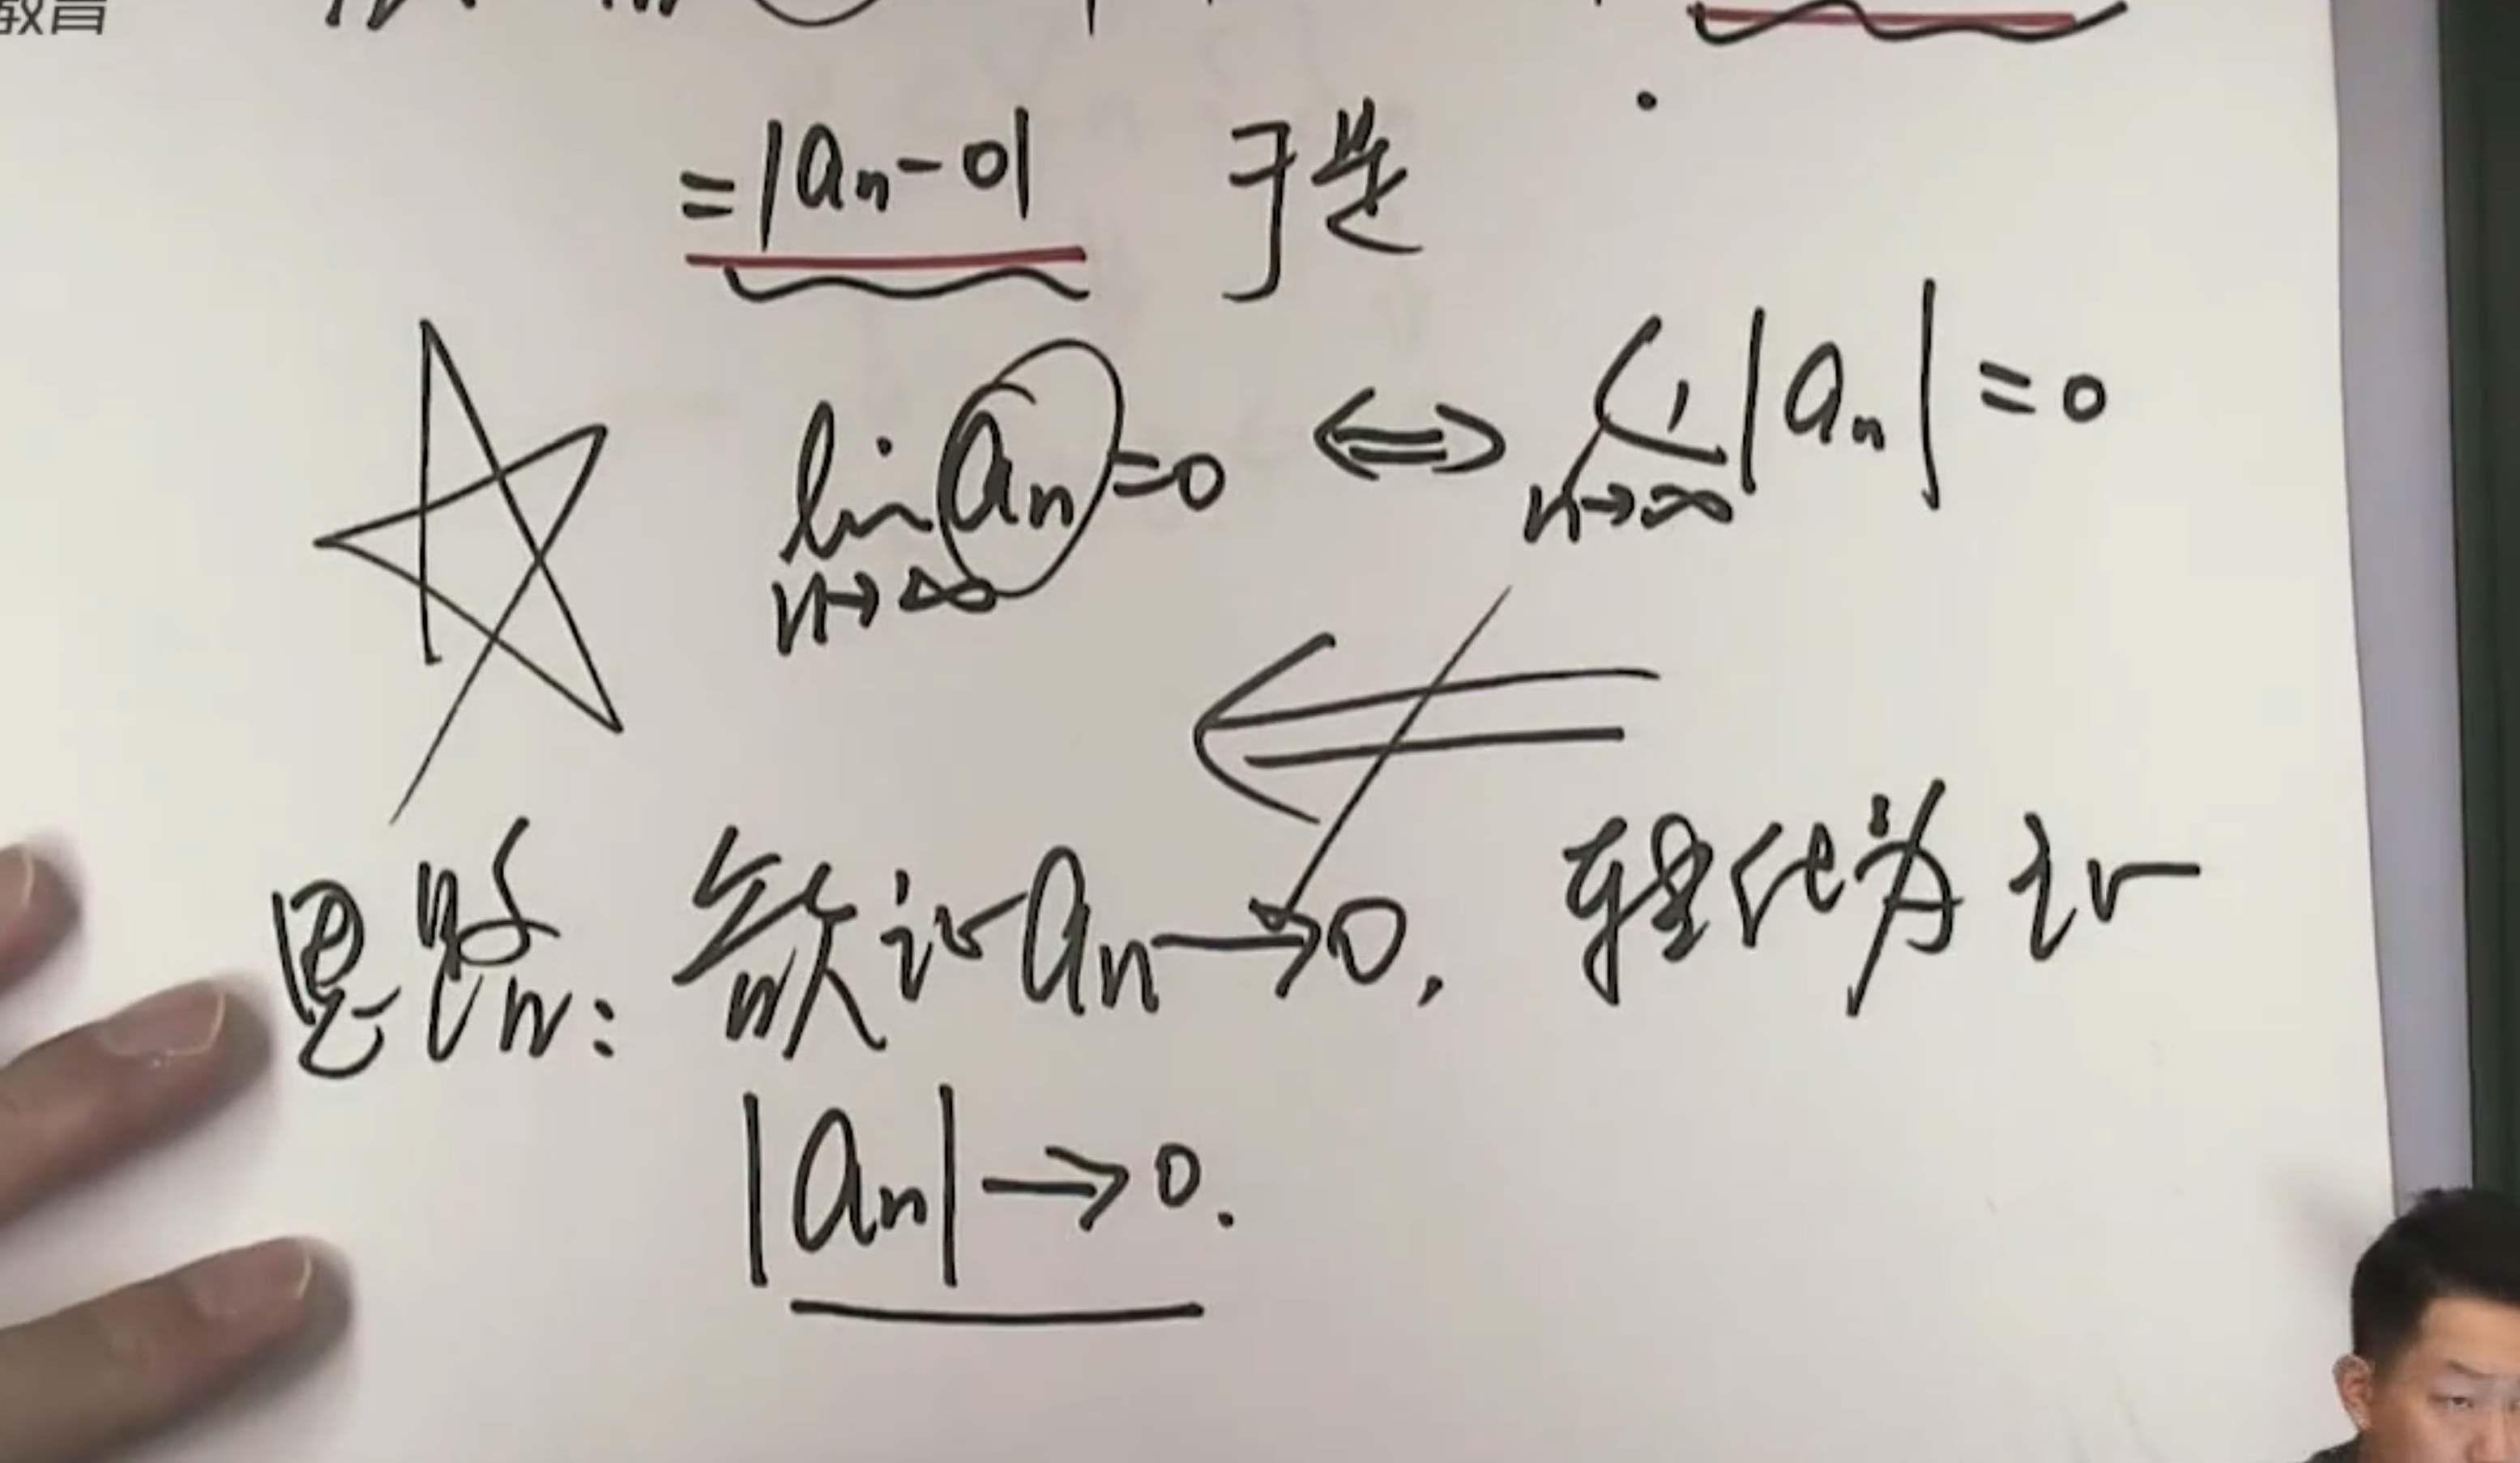 教育
=|aₙ-0| 于是
lim aₙ=0 ⟺ lim |aₙ|=0
n→∞ n→∞
⟸
思路: 欲证 aₙ→0, 转化为证
|aₙ|→0.